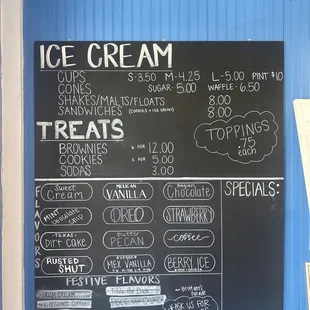 ICE CREAM
CUPS S-3.50 M-4.25 L-5.00 PINT $10
CONES SUGAR-5.00 WAFFLE-6.50
SHAKES/MALTS/FLOATS 8.00
SANDWICHES (COOKIES + ICE CREAM) 8.00
TREATS
BROWNIES 6 FOR 12.00
COOKIES 6 FOR 5.00
SODAS 3.00
TOPPINGS
.75
each
FLAVORS
Sweet Cream
MEXICAN VANILLA
Belgian Chocolate
MINT Chocolate Chip
OREO
STRAWBERRY
TEXAS Dirt Cake
Butter PECAN
coffee
RUSTED SHUT
MEX VANILLA
BERRY ICE
SPECIALS:
FESTIVE FLAVORS
ASK US FOR